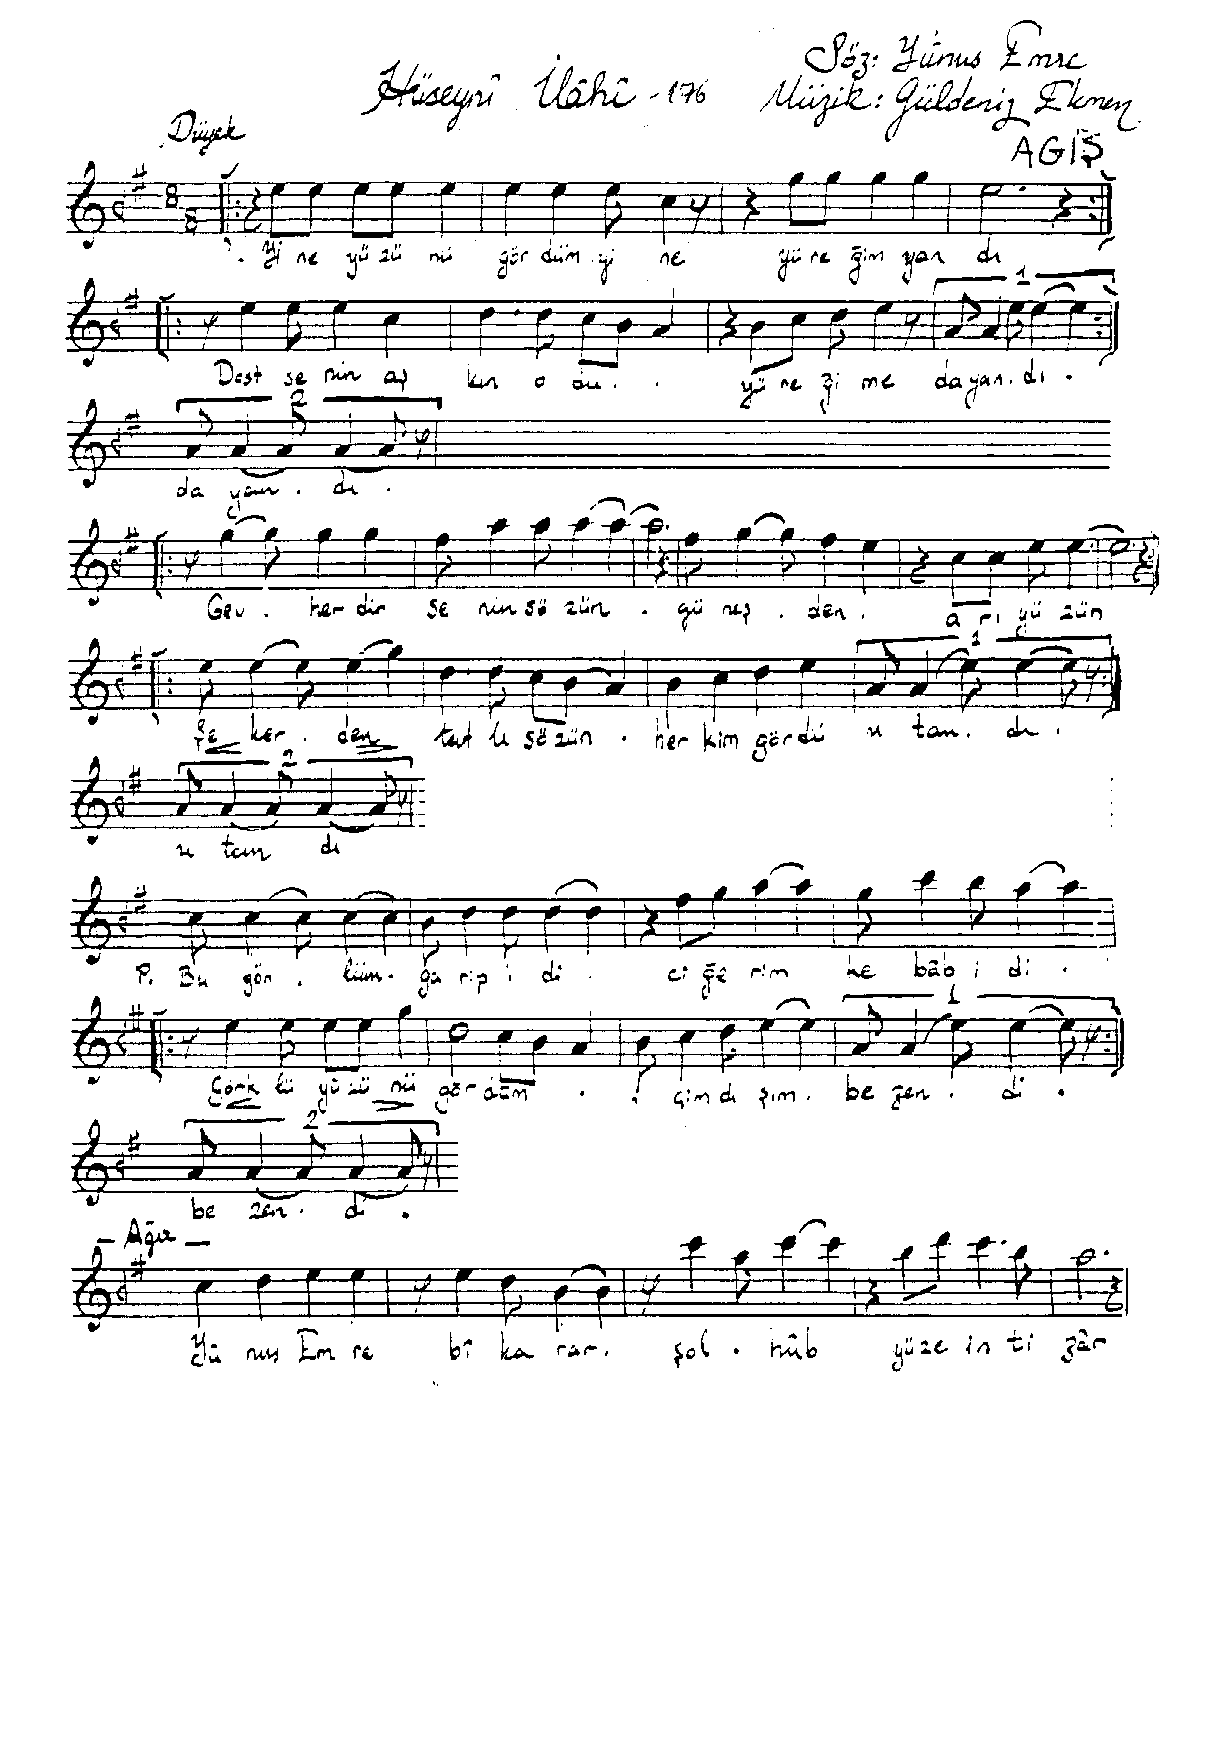 Söz: Yûnus Emre
Hüseynî İlâhî - 176 Müzik: Güldeniz Ekmen
AGİŞ
Düyek
8
8
Yi ne yü zü nü gör düm yi ne yü re ğim yan dı
1
Dost se nin aş kın o du . . yü re ği me dayan . dı .
2
da yan . dı .
Gev . her dir se nin sö zün . gü neş . den . a rı yü zün
1
Şe ker . den tat lı sö zün . her kim gördü u tan . dı .
2
u tan dı
P. Bu gön . lüm . ga rip i di . ci ğe rim ke bâb i di .
1
Görk lü yü zü nü gör düm . i çim dı şım . be zen . di .
2
be zen . di .
- Ağır -
Yû nus Em re bî ka rar . şol . hûb yü ze in ti zâr